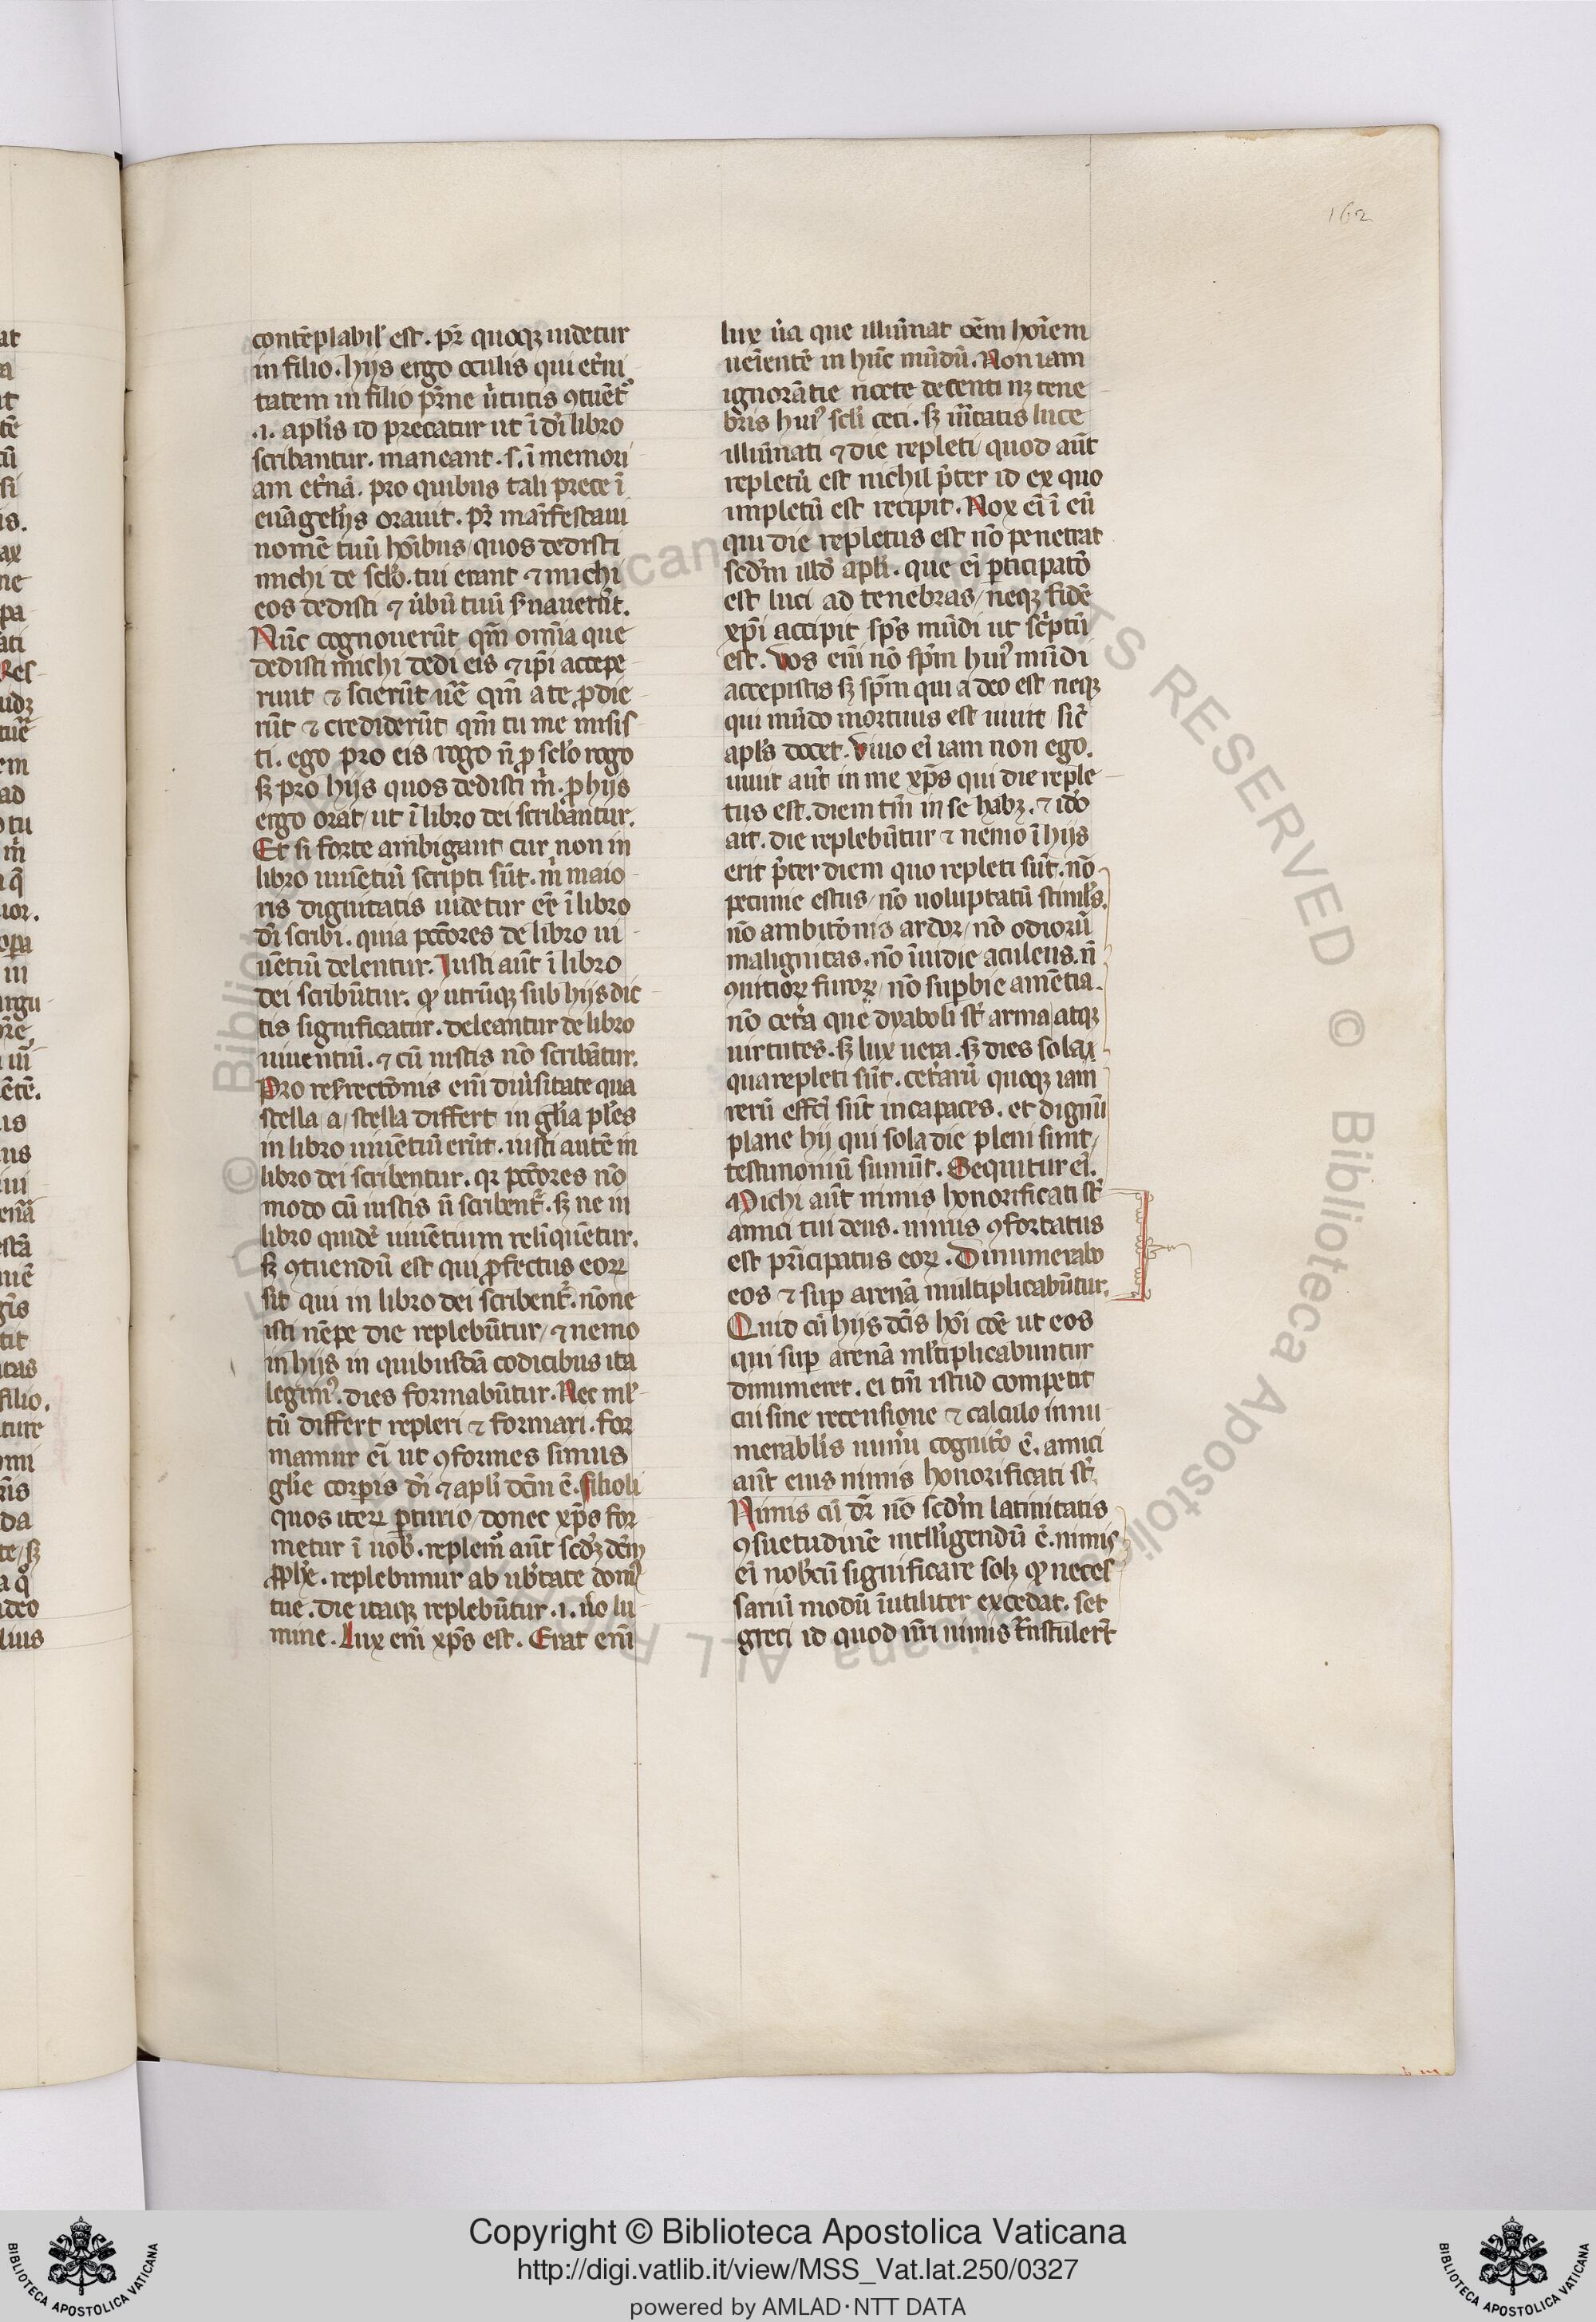 162
contēplabil' est. pr̄ quoqꝫ uidetur
in filio. hijs ergo oculis qui et̓ni
tatem in filio pr̄ne u̓tutis ꝯtuēt᷑
.i. apl̓is id precatur ut ī dī libro
scribantur. maneant. s. ī memori
am et̓nā. pro quibus tali prece ī
euāgelijs orauit. pr̄ manīfestaui
nomē tuū hoībus / quos dedisti
michi de sclo̓. tui erant ⁊ michi
eos dedisti ⁊ u̓bū tuū s̓uauerūt.
Nūc cognouerūt qm̄ omīa que
dedisti michi dedi eis ⁊ ipī accepe
runt ⁊ scierūt ue̓ qm̄ a te ꝓdie
rūt ⁊ crediderūt qm̄ tu me misis
ti. ego pro eis rogo n̄ ꝓ sclo̓ rogo
sꝫ pro hijs quos dedisti m̓. ꝓ hijs
ergo orat / ut ī libro dei scribāntur.
Et si forte ambigant cur non in
libro uiuētiū scripti sūt. m̓ maio
ris dignitatis uidetur eē̄ ī libro
dī scribi. quia pccōres de libro ui
uētiū delentur. Iusti aūt ī libro
dei scribūtur. ꝙ utrūqꝫ sub hijs dic
tis significatur. deleantur de libro
uiuentiū. ⁊ cū iustis nō scribātur.
Pro resrectōnis enī diu̓sitate qua
stella a / stella differt in gl̓ia pl̓es
in libro uiuētiū erūt. iusti autē in
libro dei scribentur. qr pccōres nō
modo cū iustis n̄ scribent᷑. sꝫ ne in
libro quidē uiuētium relīquētur.
sꝫ ꝯtuendū est qui ꝓfectus eoꝝ
sit qui in libro dei scribent᷑. nōne
isti nēpe die replebūtur / ⁊ nemo
in hijs in quibusdā codicibus ita
legim᷒. dies formabūtur. Nec ml̓
tū differt repleri ⁊ formari. for
mamur eī ut ꝯformes simus
gl̓ie corpis dī ⁊ apl̓i dcm̄ ē. filioli
quos iteꝝ ꝑturio / donec xp̄s for
metur ī uob̓. replem᷒ aūt scdꝫ dcm̄
ꝓph̓e. replebimur ab ub̓tate dom᷒
tue. die itaqꝫ replebūtur .i. u̓o lu
mine. Lux enī xp̄s est. Erat enī
lux u̓a que illuīnat oēm hoīem
ueīentē in hūc mūdū. Non iam
ignorātie nocte detenti nꝫ tene
bris hui᷒ scl̓i ceci. sꝫ u̓itatis luce
illuīnati ⁊ die repleti / quod aūt
repletū est nichil p̓ter id ex quo
impletū est recipit. Nox eī ī eū
qui die repletus est nō penetrat
scdm̄ illd̓ apl̓i. que eī ꝑticipatō
est luci ad tenebras / neqꝫ fidē
xp̄i accipit sp̄s mūdi ut sc̓ptū
est. Vos enī nō spm̄ hui᷒ mūdi
accepistis sꝫ spm̄ qui a deo est neqꝫ
qui mūdo mortuus est uiuit / sic̄
apl̓s docet. Viuo eī iam non ego.
uiuit aūt in me xp̄s qui die reple
tus est. diem tm̄ in se habꝫ. ⁊ ido̓
ait. die replebūtur ⁊ nemo ī hijs
erit p̓ter diem quo repleti sūt. nō
pecunie estus / nō uoluptatū stimul̓s.
nō ambitōnis ardor / nō odiorū
malignitas. nō īuidie aculeus. n̄
ꝯuitioꝝ furoꝝ / nō supbie amētia.
nō cet̓a que dyaboli st̄ arma atqꝫ
uirtutes. sꝫ lux uera. sꝫ dies sola
qua repleti sūt. cet̓arū quoqꝫ iam
rerū effc̄i sūt incapaces. et dignū
plane hij qui sola die pleni sunt /
testimoniū sumūt. Sequitur eī.
Michi aūt nimis honorificati st̄
amici tui deus. nimis ꝯfortatus
est prīcipatus eoꝝ. Dinumerabo
eos ⁊ sup arenā multiplicabūtur.
Quid cū hijs dcīs hoī cōe ut eos
qui sup arenā ml̓tiplicabuntur
dinumeret. ei tm̄ istud competit
cui sine recensione ⁊ calculo innu
merabl̓is num̓i cognitō ē. amici
aūt eius nimis honorificati st̄.
Nimis cū dr̄ nō scdm̄ latinitatis
ꝯsuetudinē intell̓igendū ē. nimis
eī nob̓cū significare solꝫ ꝙ neces
sariū modū īutiliter excedat. set
greci id quod nr̄i nimis tr̄nstulert̄
Copyright © Biblioteca Apostolica Vaticana
http://digi.vatlib.it/view/MSS_Vat.lat.250/0327
powered by AMLAD·NTT DATA
BIBLIOTECA APOSTOLICA VATICANA
BIBLIOTECA APOSTOLICA VATICANA